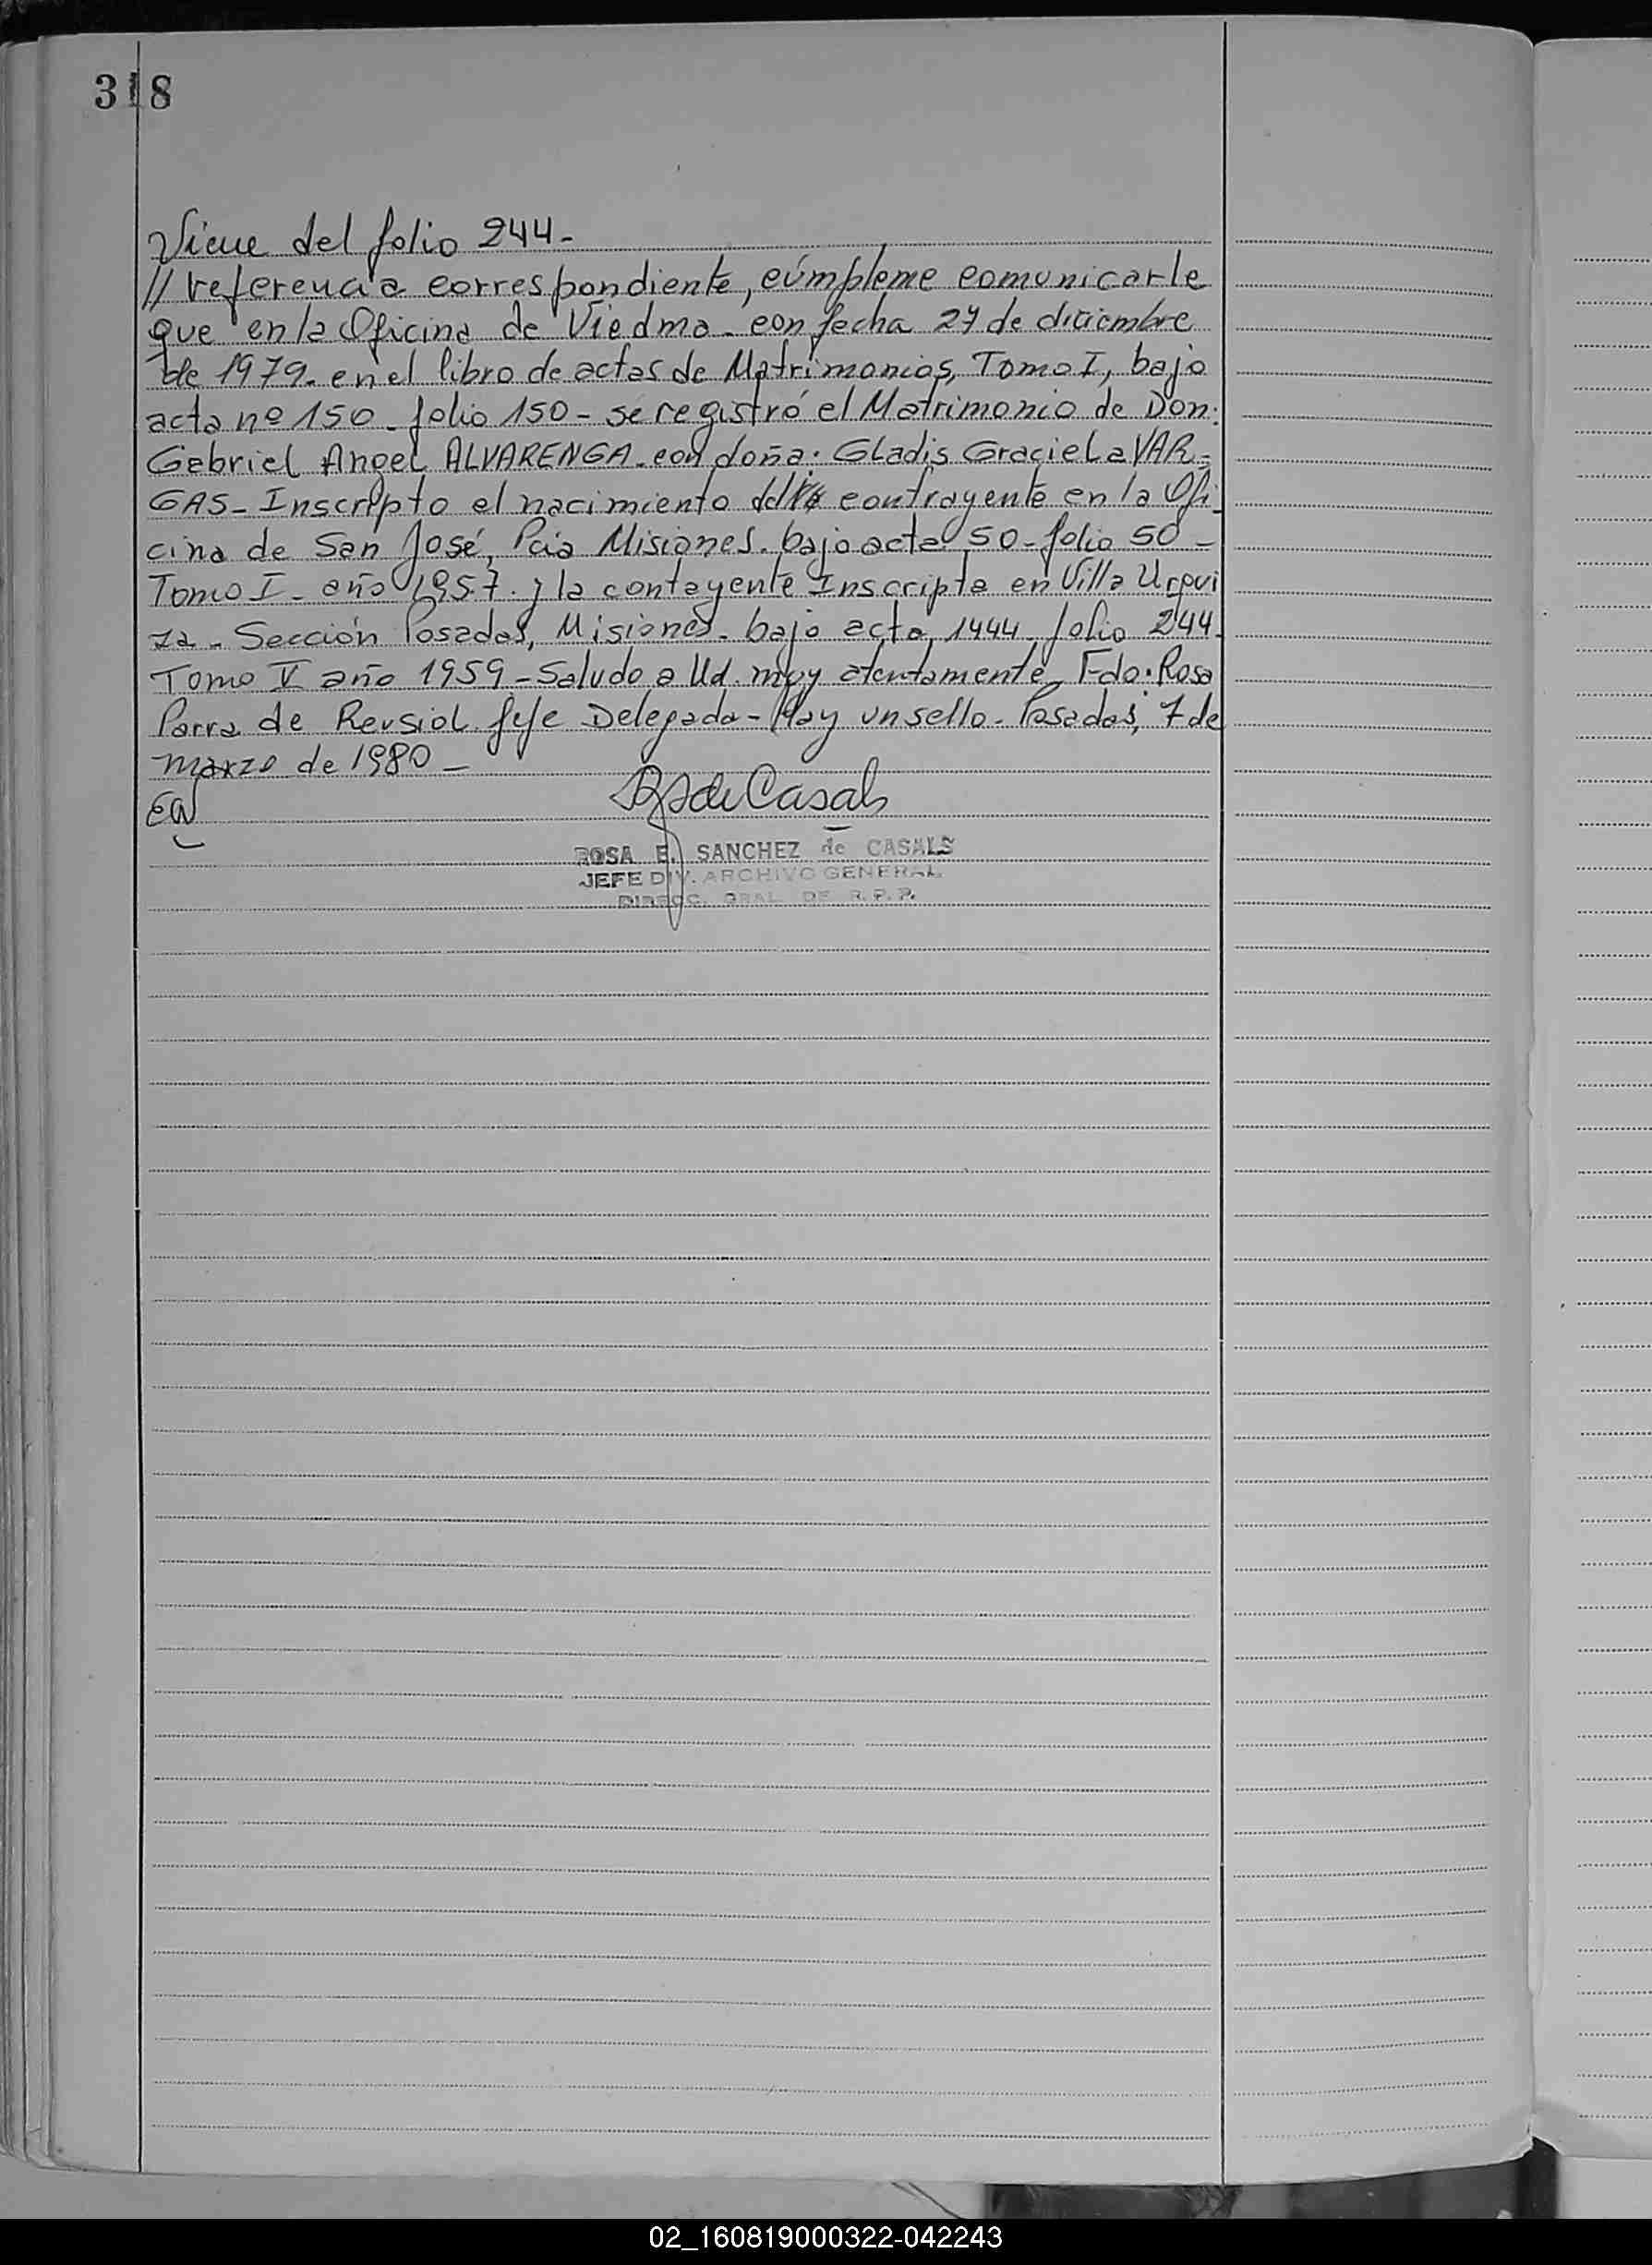 318
Viene del folio 244-
// referencia correspondiente, cúmpleme comunicarle
que en la Oficina de Viedma - con fecha 27 de diciembre
de 1979. en el libro de actas de Matrimonios, Tomo I, bajo
acta nº 150 - folio 150 - se registró el Matrimonio de Don:
Gabriel Angel ALVARENGA - con doña: Gladis Graciela VAR-
GAS - Inscripto el nacimiento del contrayente en la Ofi-
cina de San José, Pcia Misiones. bajo acta 50 - folio 50 -
Tomo I - año 1957. y la contayente Inscripta en Villa Urqui
za - Sección Posadas, Misiones - bajo acta 1444 - folio 244.
Tomo V año 1959 - Saludo a Ud. muy atentamente - Fdo: Rosa
Parra de Reusiol. Jefe Delegada - Hay un sello - Posadas, 7 de
marzo de 1980 -
de Casals
ROSA E. SANCHEZ de CASALS
JEFE DIV. ARCHIVO GENERAL
DIRECC. GRAL DE R. P. P.
02_160819000322-042243